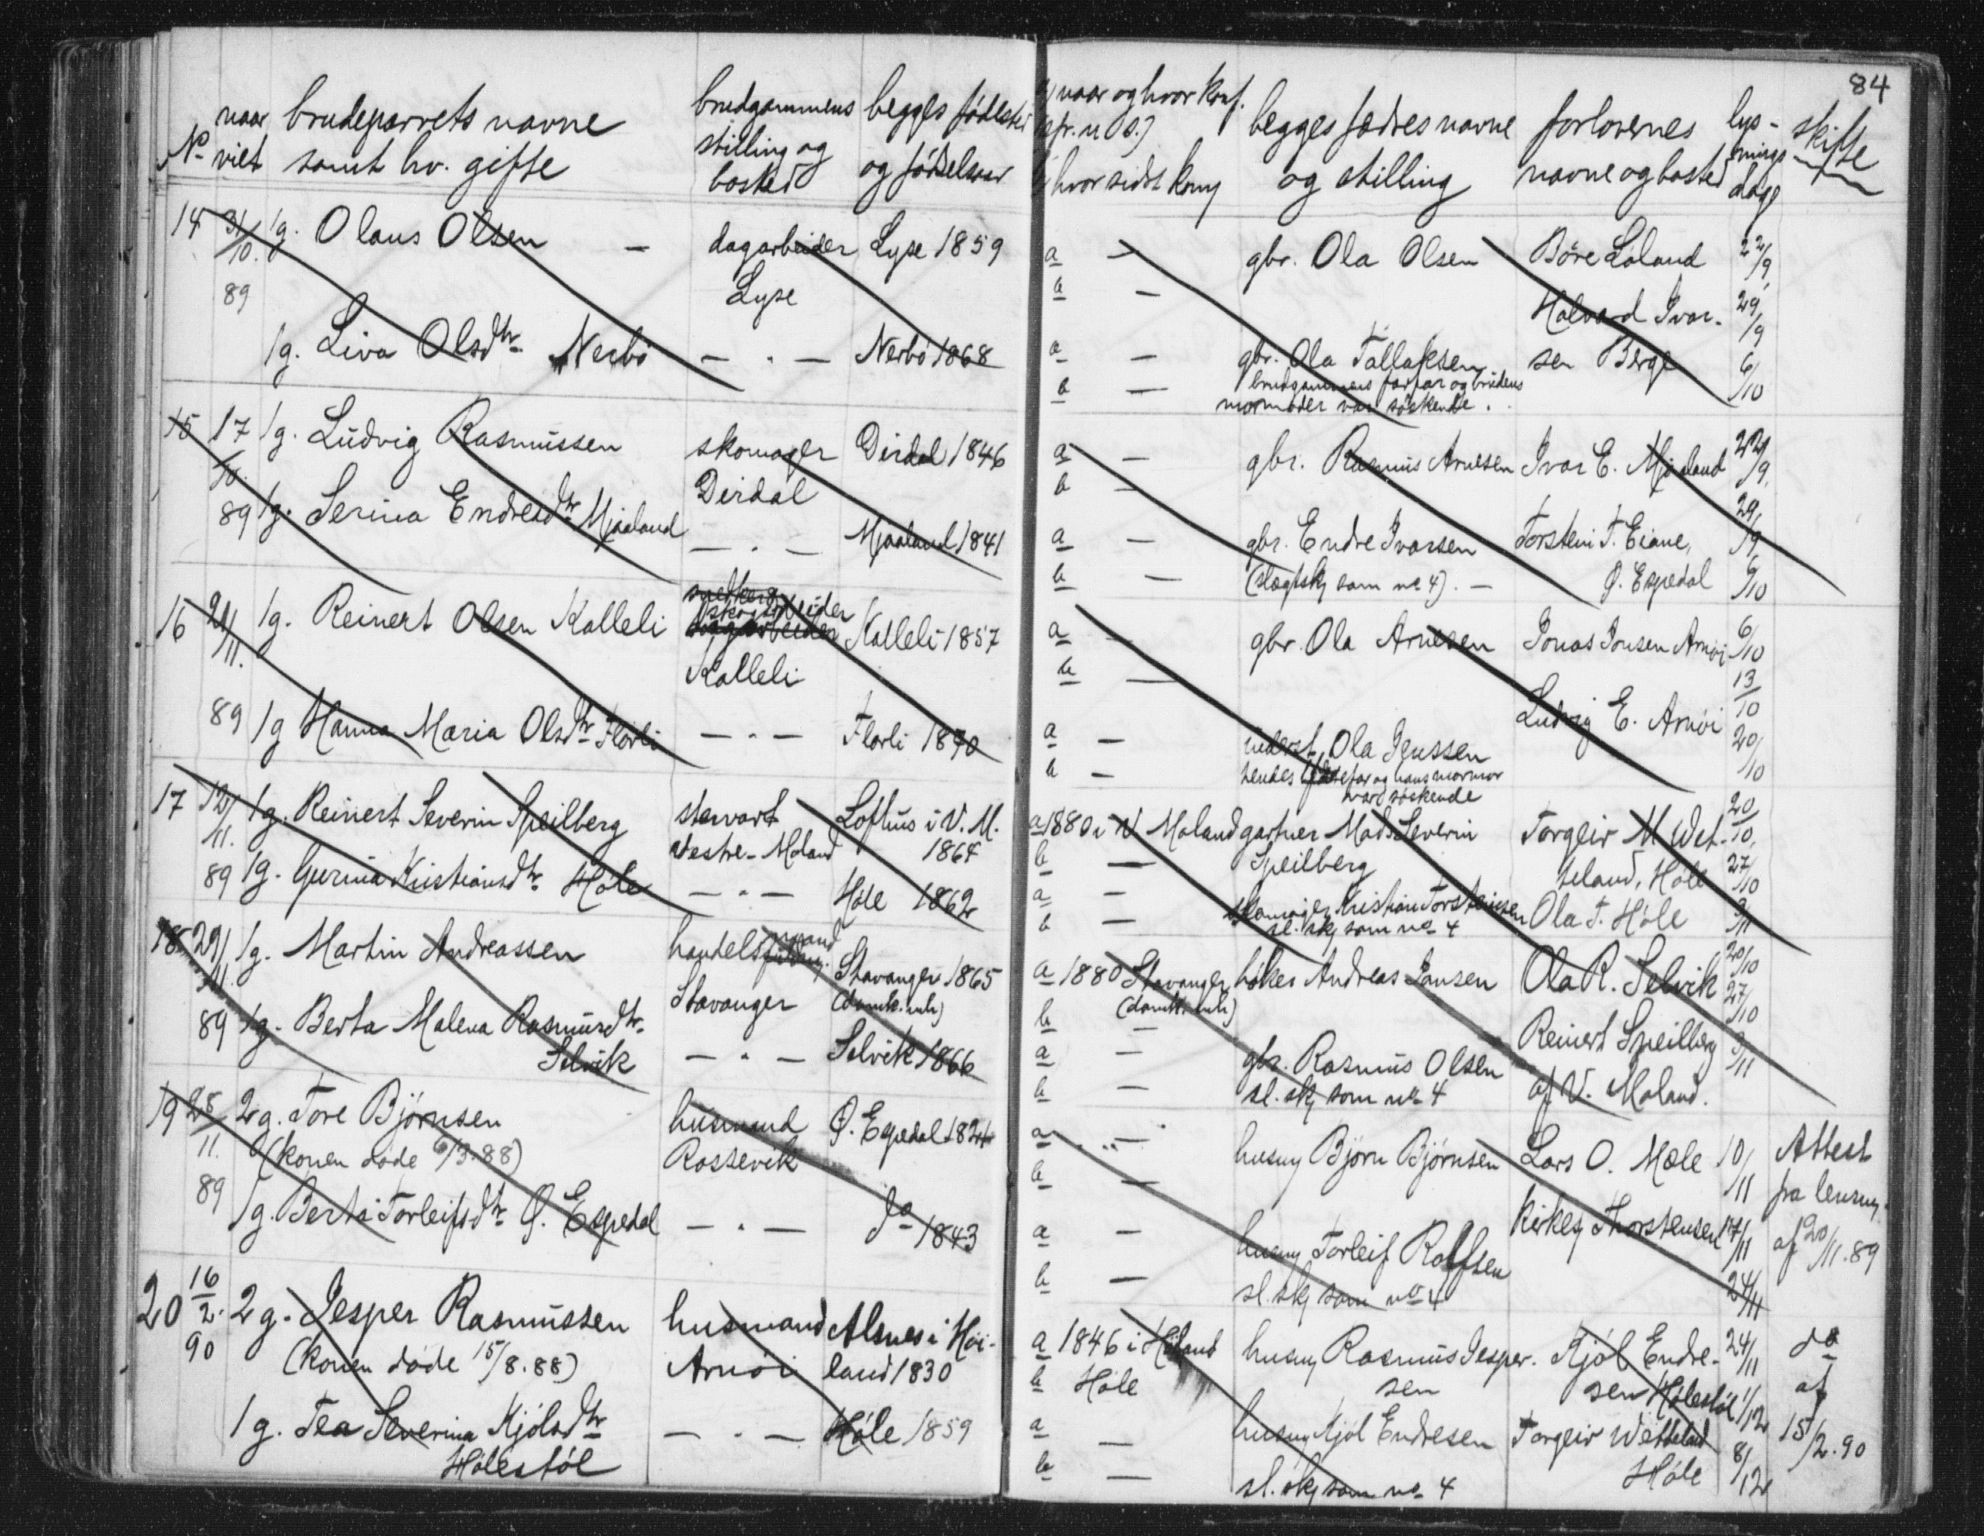 84
No naar viet
brudeparrets navne samt hv. gifte
brudgommens stilling og bosted
begges födested og födselsaar
naar og hvor konf.
hvor sidst kom
begges fædres navne og stilling
forlovernes navne og bosted
lysnings dage
skifte
14 31/10. 89
1g. Olaus Olsen —
dagarbeider Lyse
Lyse 1859
a —
b —
gbr. Ola Olsen
Böre Loland
22/9
1g. Liva Olsdtr. Nerbö
— " —
Nerbö 1868
a —
b —
gbr. Ola Tallaksen
brudgommens farfar og brudens
mormoder var söskende.
Halvard Ivar-
sen Berge
29/9
6/10
15 17/10. 89
1g. Ludvig Rasmussen
skomager
Dirdal
Dirdal 1846
a —
b —
gbr. Rasmus Arnesen
Ivar E. Mjaaland
22/9
1g. Serina Endresdtr. Mjaaland
— " —
Mjaaland 1841
a —
b —
gbr. Endre Ivarsen
(slegtskj som no 4). —
Torstein T. Eiane,
Ö. Espedal
29/9
6/10
16 21/11. 89
1g. Reinert Olsen Kalleli
skogarbeider
Kalleli
Kalleli 1857
a —
b —
gbr. Ola Arnesen
Jonas Jonsen Arnöi
6/10
13/10
1g Hanna Maria Olsdtr. Flörli
— " —
Flörli 1870
a —
b —
inderst Ola Jenssen
hendes farfar og hans mormor
var söskende
Ludvig E. Arnöi
20/10
17 12/11. 89
1g. Reinert Severin Speilberg
stewart
Vestre-Moland
Lofthus i V. M.
1864
a 1880 i V Moland
b —
gartner Mads Severin
Speilberg
Torgeir M Wet-
teland, Höle
20/10.
27/10
1g. Gurina Kristiansdtr. Höle
— " —
Höle 1862
a —
b —
skomager Kristian Torsteinsen
sl. skj som no 4
Ola T. Höle
3/11
18 29/11. 89
1g. Martin Andreassen
handelsmand
Stavanger
Stavanger 1865
(domk. mh)
a 1880 Stavanger
(domk. mh)
b —
höker Andreas Jansen
Ola R. Selvik
20/10
27/10
1g. Berta Malena Rasmusdtr.
Selvik
— " —
Selvik 1866
a —
b —
gbr. Rasmus Olsen
sl. skj som no 4
Reinert Speilberg
af V. Moland.
3/11
19 28/11. 89
2g. Tore Björnsen
(konen döde 6/3.88)
husmand
Rossevik
Ö. Espedal 1824
a —
b —
husm Björn Björnsen
Lars O. Mæle
10/11
Attest
fra lensm.
af 20/11.89
1g. Berta Torleifsdtr. Ö. Espedal
— " —
do 1843
a —
b —
husm Torleif Rolfsen
sl. skj som no 4
Kirkes Thorstensen
17/11
24/11
20 16/2. 90
2g. Jesper Rasmussen
(konen döde 15/8.88)
husmand
Arnöi
Alsnes i Höi-
land 1830
a 1846 i Höland
b Höle
husm Rasmus Jesper-
sen
Kjöl Endre-
sen Hölestöl
24/11
1/12
do
af
15/2.90
1g. Tea Severina Kjölsdtr
Hölestöl
— " —
Höle 1859
a —
b —
husm Kjöl Endresen
sl. skj som no 4
Torgeir Wetteland
Höle
8/12